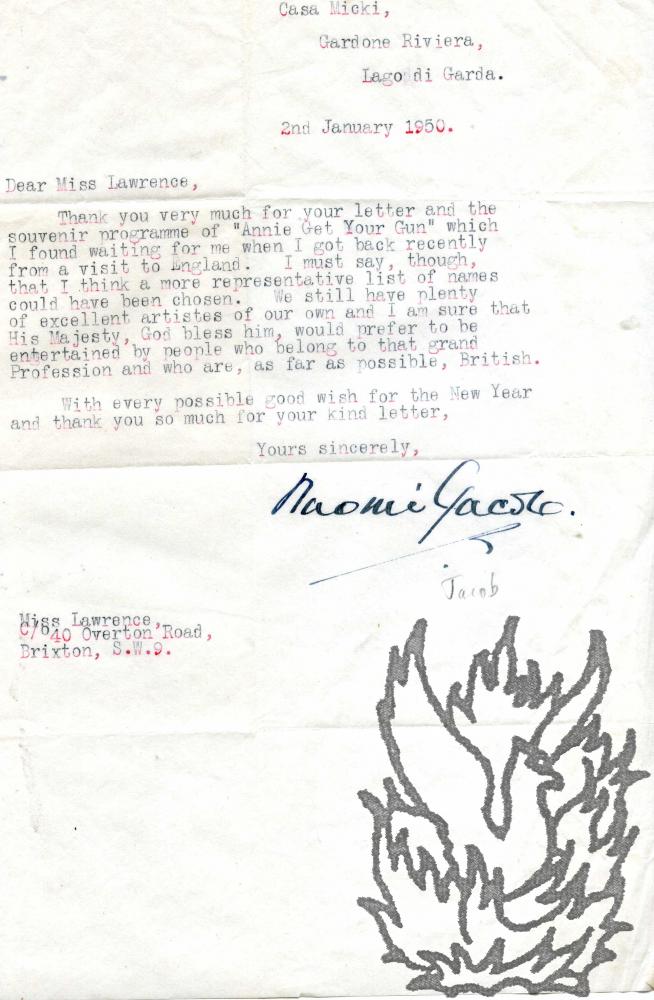 Casa Micki,
Gardone Riviera,
Lago di Garda.
2nd January 1950.
Dear Miss Lawrence,
Thank you very much for your letter and the
souvenir programme of "Annie Get Your Gun" which
I found waiting for me when I got back recently
from a visit to England. I must say, though,
that I think a more representative list of names
could have been chosen. We still have plenty
of excellent artistes of our own and I am sure that
His Majesty, God bless him, would prefer to be
entertained by people who belong to that grand
Profession and who are, as far as possible, British.
With every possible good wish for the New Year
and thank you so much for your kind letter,
Yours sincerely,
Naomi Jacob.
Jacob
Miss Lawrence,
C/o 40 Overton Road,
Brixton, S.W.9.